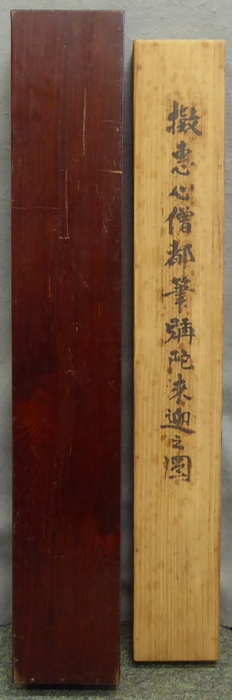 擬恵心僧都筆弥陀来迎之図